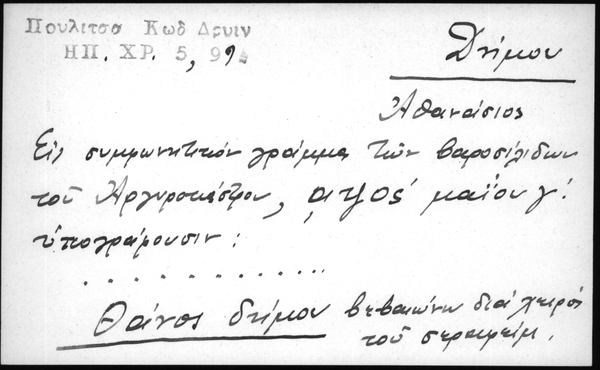 Πουλιτσα Κωδ Δρυιν
ΗΠ. ΧΡ. 5, 99
Δήμου
Ἀθανάσιος
Εἰς συμφωνητικόν γράμμα τῶν βαροσιλιδων
τοῦ Ἀργυροκάστρου, αψος΄ μαΐου γ΄.
ὑπογράφουσιν :
. . . . . . . . . . . . .
Θάνος δήμου βεβαιώνω διά χειρός
τοῦ σεραφείμ.